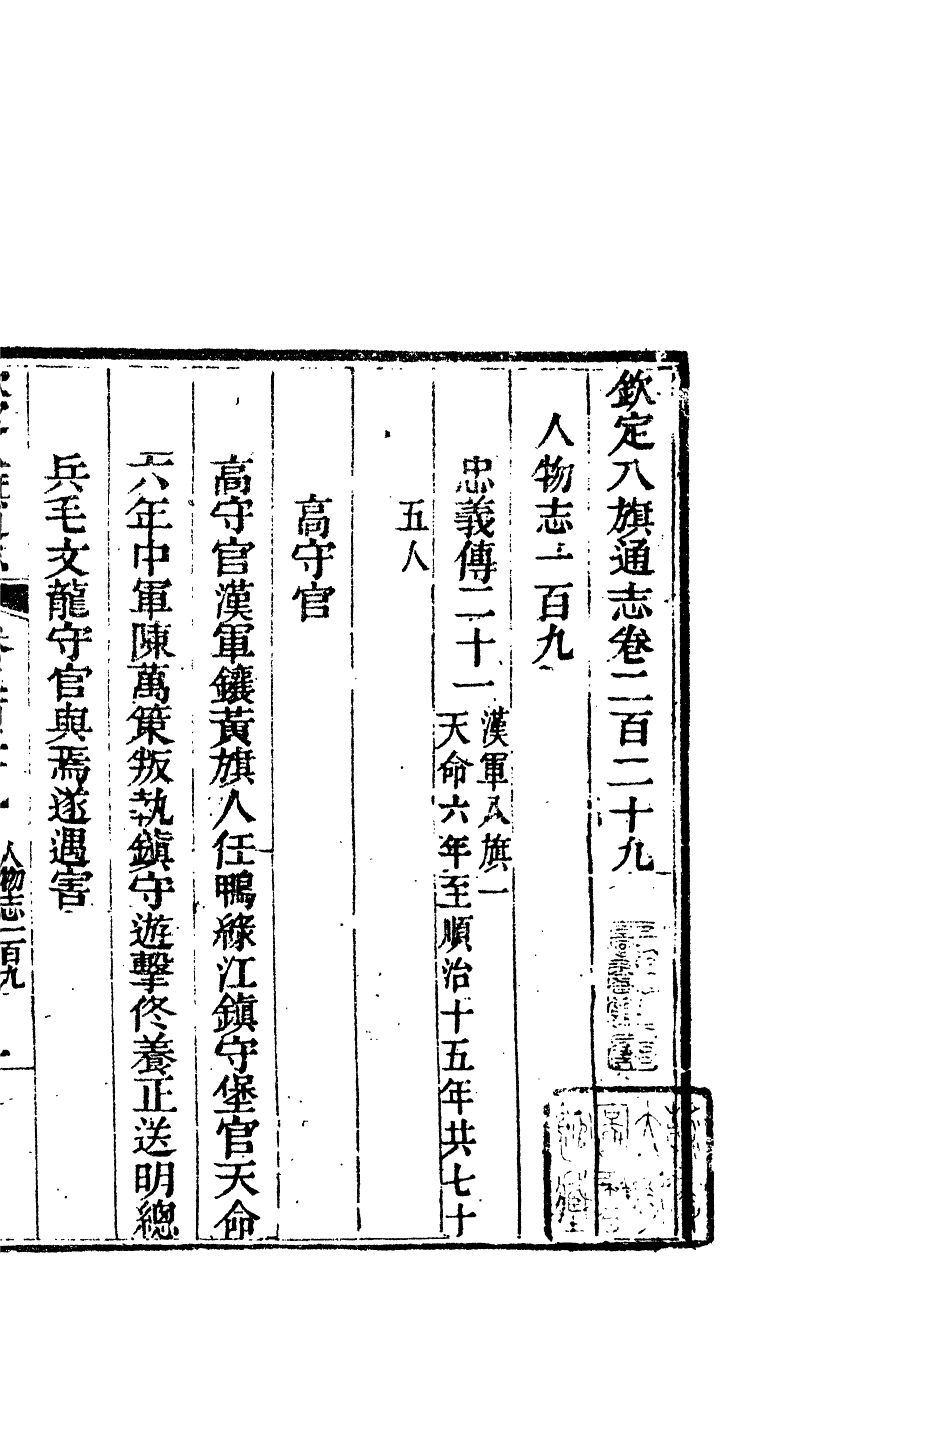 欽定八旗通志卷二百二十九
人物志一百九
忠義傳二十一
漢軍八旗一
天命六年至順治十五年共七十
五人
高守官
高守官漢軍鑲黃旗人任鴨綠江鎮守堡官天命
六年中軍陳萬策叛執鎮守遊擊佟養正送明總
兵毛文龍守官與焉遂遇害
人物志一百九
一